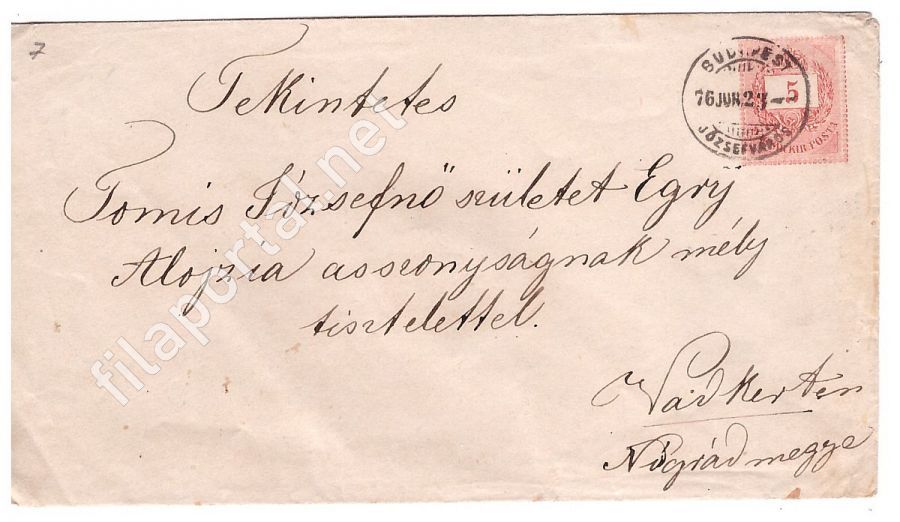 7
BUDAPEST
76 JUN. 27
JÓZSEFVÁROS
5
KIR. POSTA
Tekintetes
Tomis Józsefnő született Egry
Alojzia asszonyságnak mély
tisztelettel.
Vadkerten
Nógrád megye
filaportal.net